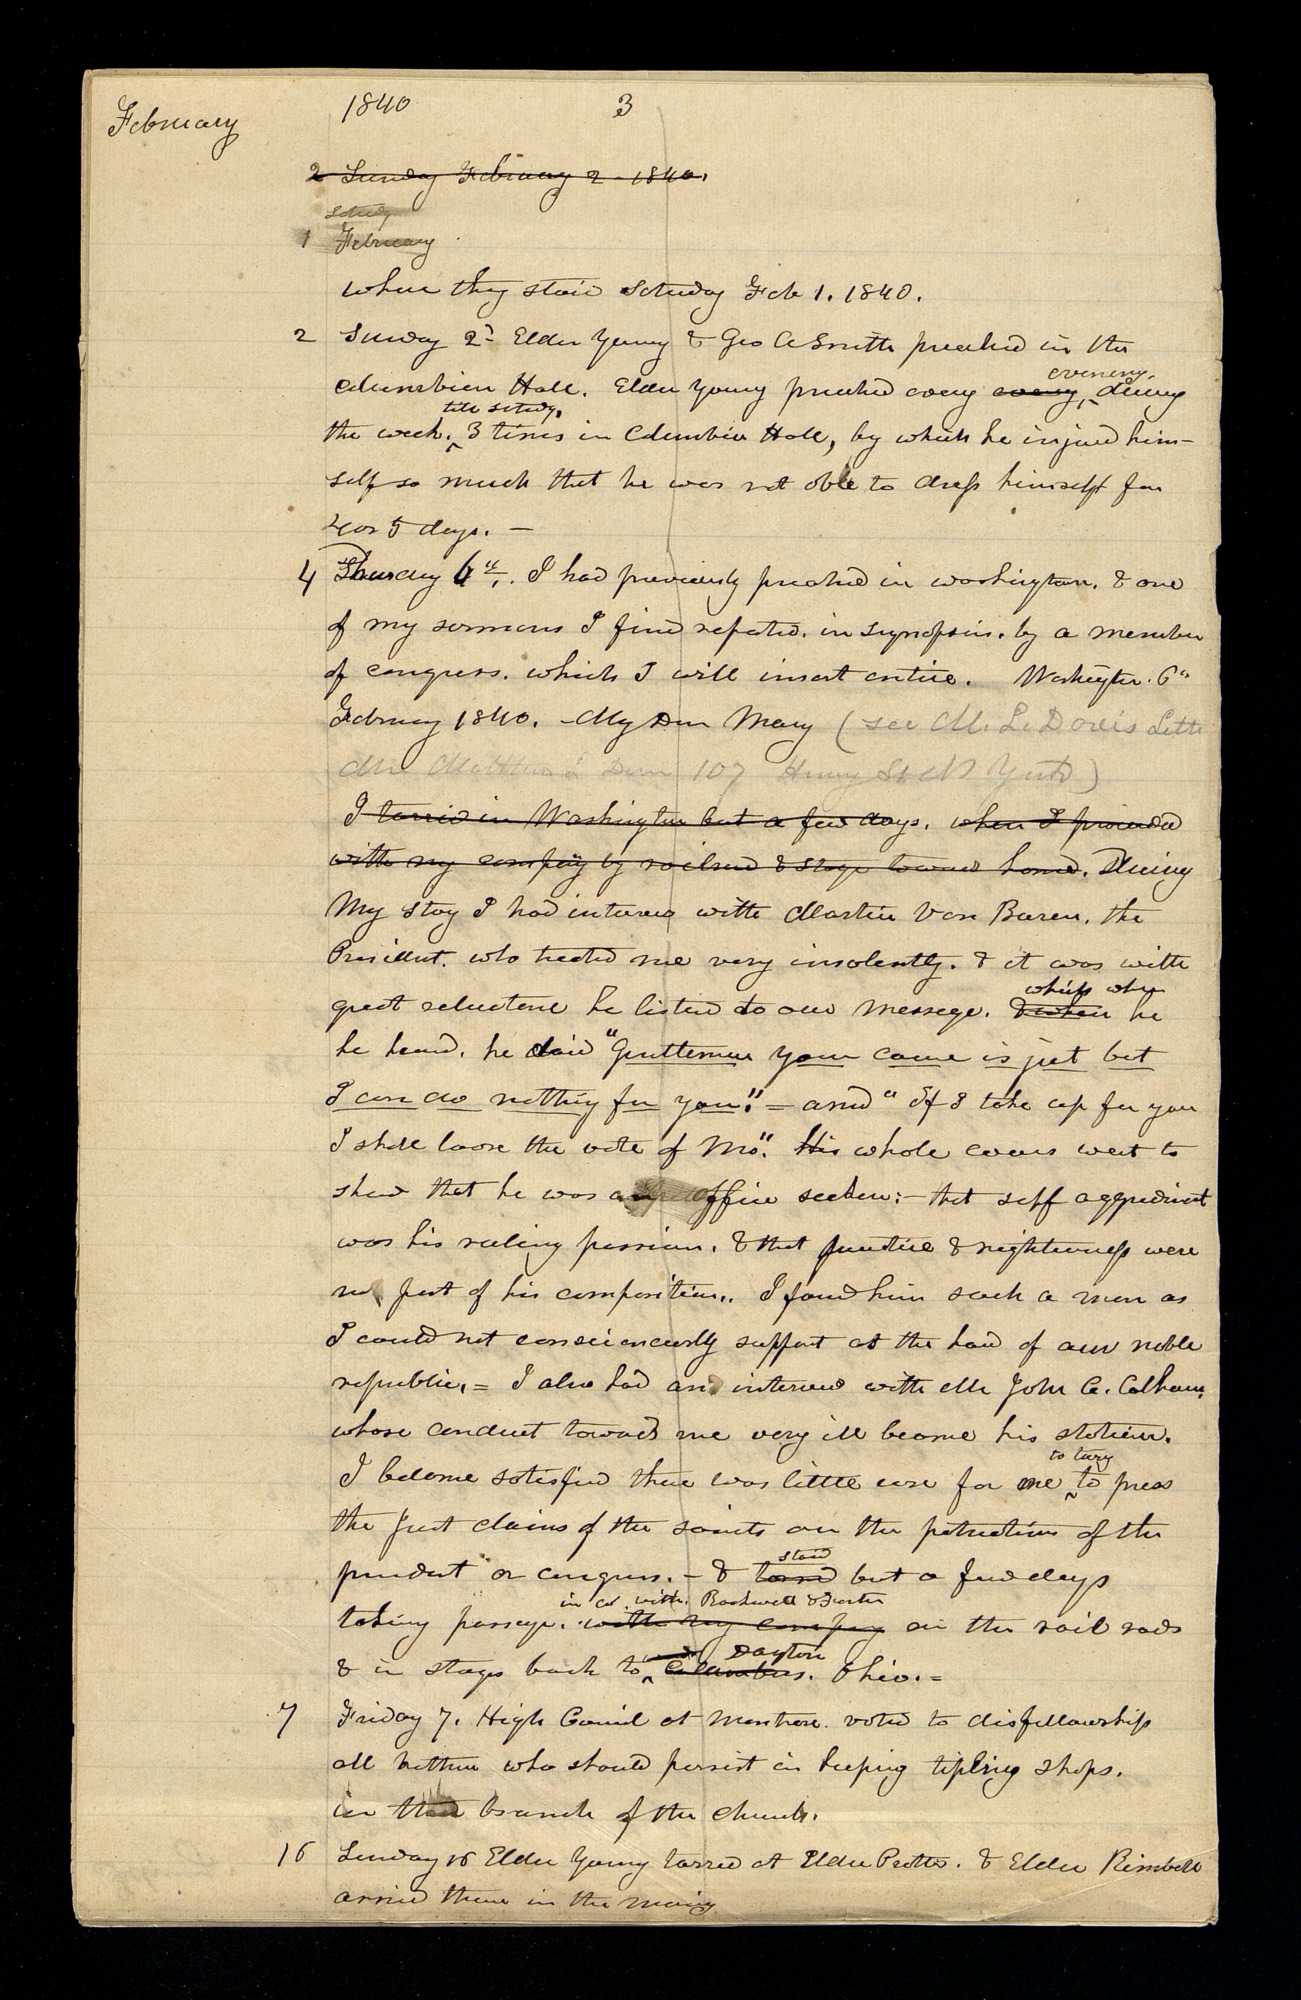 February
1840
3
2 Sunday February 2 1840.
Saturday
1 February
where they staid Saturday Feb 1. 1840.
2 Sunday 2d Elder Young & Geo A Smith preached in the
evening.
Columbian Hall. Elder Young preached every eveng, during
till Saturdy,
the week. 3 times in Columbian Hall, by which he injured him-
self so much that he was not able to dress himself for
4 or 5 days. —
4 Thursday 6th. I had previously preached in Washington. & one
of my sermons I find repated. in synopsis. by a member
of congress. which I will insert entire. Washington. 6th
February 1840. My Dear Mary (see M. L. Davis Lette
Mrs Matthew L Davis 107 Henry St N York)
I tarried in Washington but a few days. when I proceeded
with my company by railroad & stage toward home. During
My stay I had interview with Martin Van Buren. the
President. who treated me very insolently. & it was with
which when
great reluctance he listend to our message. & when he
he heard. he said "Gentlemen your cause is just but
I can do nothing for you." = and "If I take up for you
I shall loose the vote of Mo". His whole course went to
shew that he was an office seeker: — that self aggrediment
was his ruling passion. & that justice & righteousness were
no part of his composition.. I found him such a man as
I could not consciencously support at the head of our noble
republic. = I also had an interview with Mr John C. Calhoun,
whose conduct towards me very ill became his station.
to tary
I became satisfied there was little use for me to press
the just claims of the saints on the
of the
staid
president or congress. — & tarred but a few days
in co. with. Rockwell & Foster
taking passage. with my company on the rail roads
Dayton
& in stages back to Columbus. Ohio. =
7 Friday 7. High Council at Montrose. voted to disfellowship
all brethren who should persist in keeping tipling shops.
in that branch of the church.
16 Sunday 16 Elder Young tarred at Elder Pratts. & Elder Kimball
arrived there in the